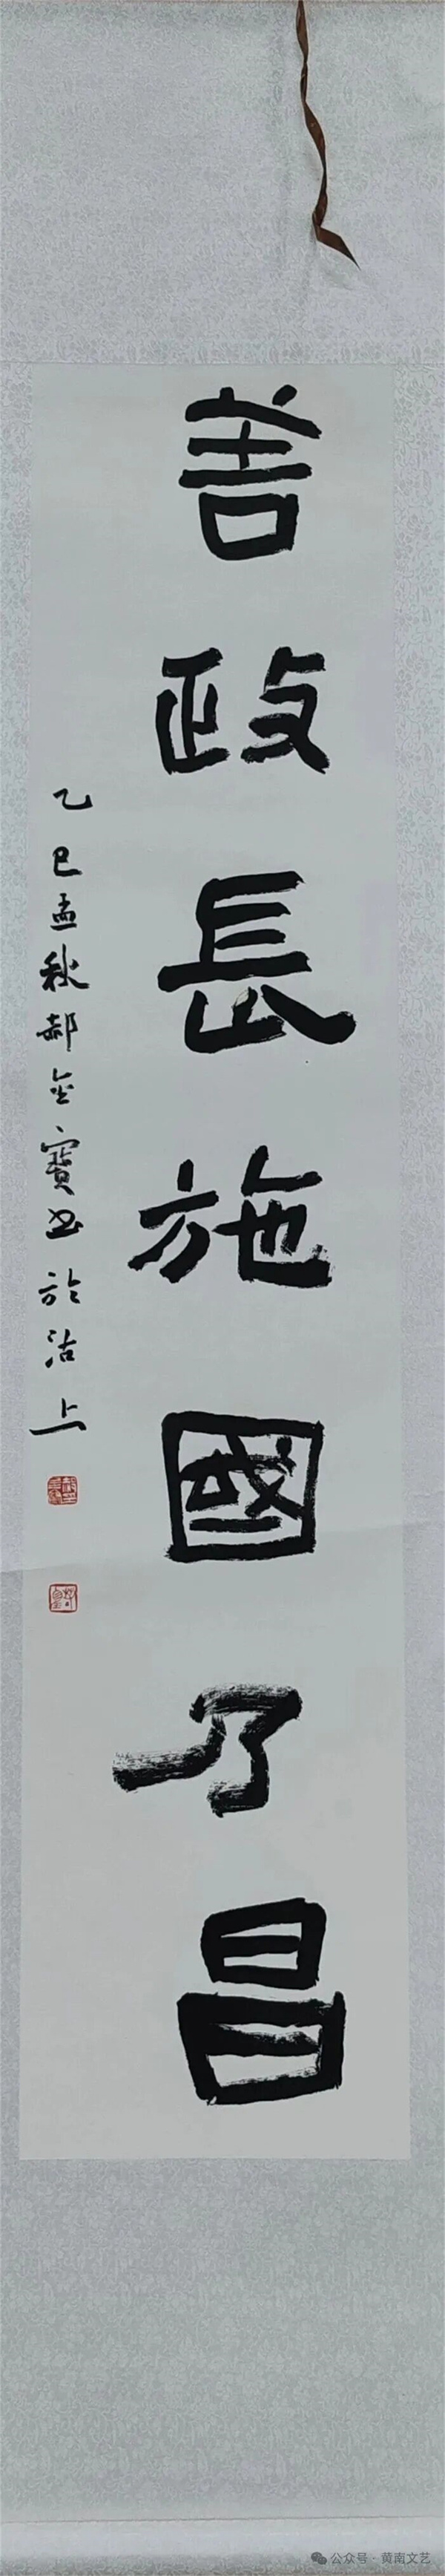 善政長施國乃昌
乙巳孟秋郝金寶書於沽上
公众号 · 黄南文艺